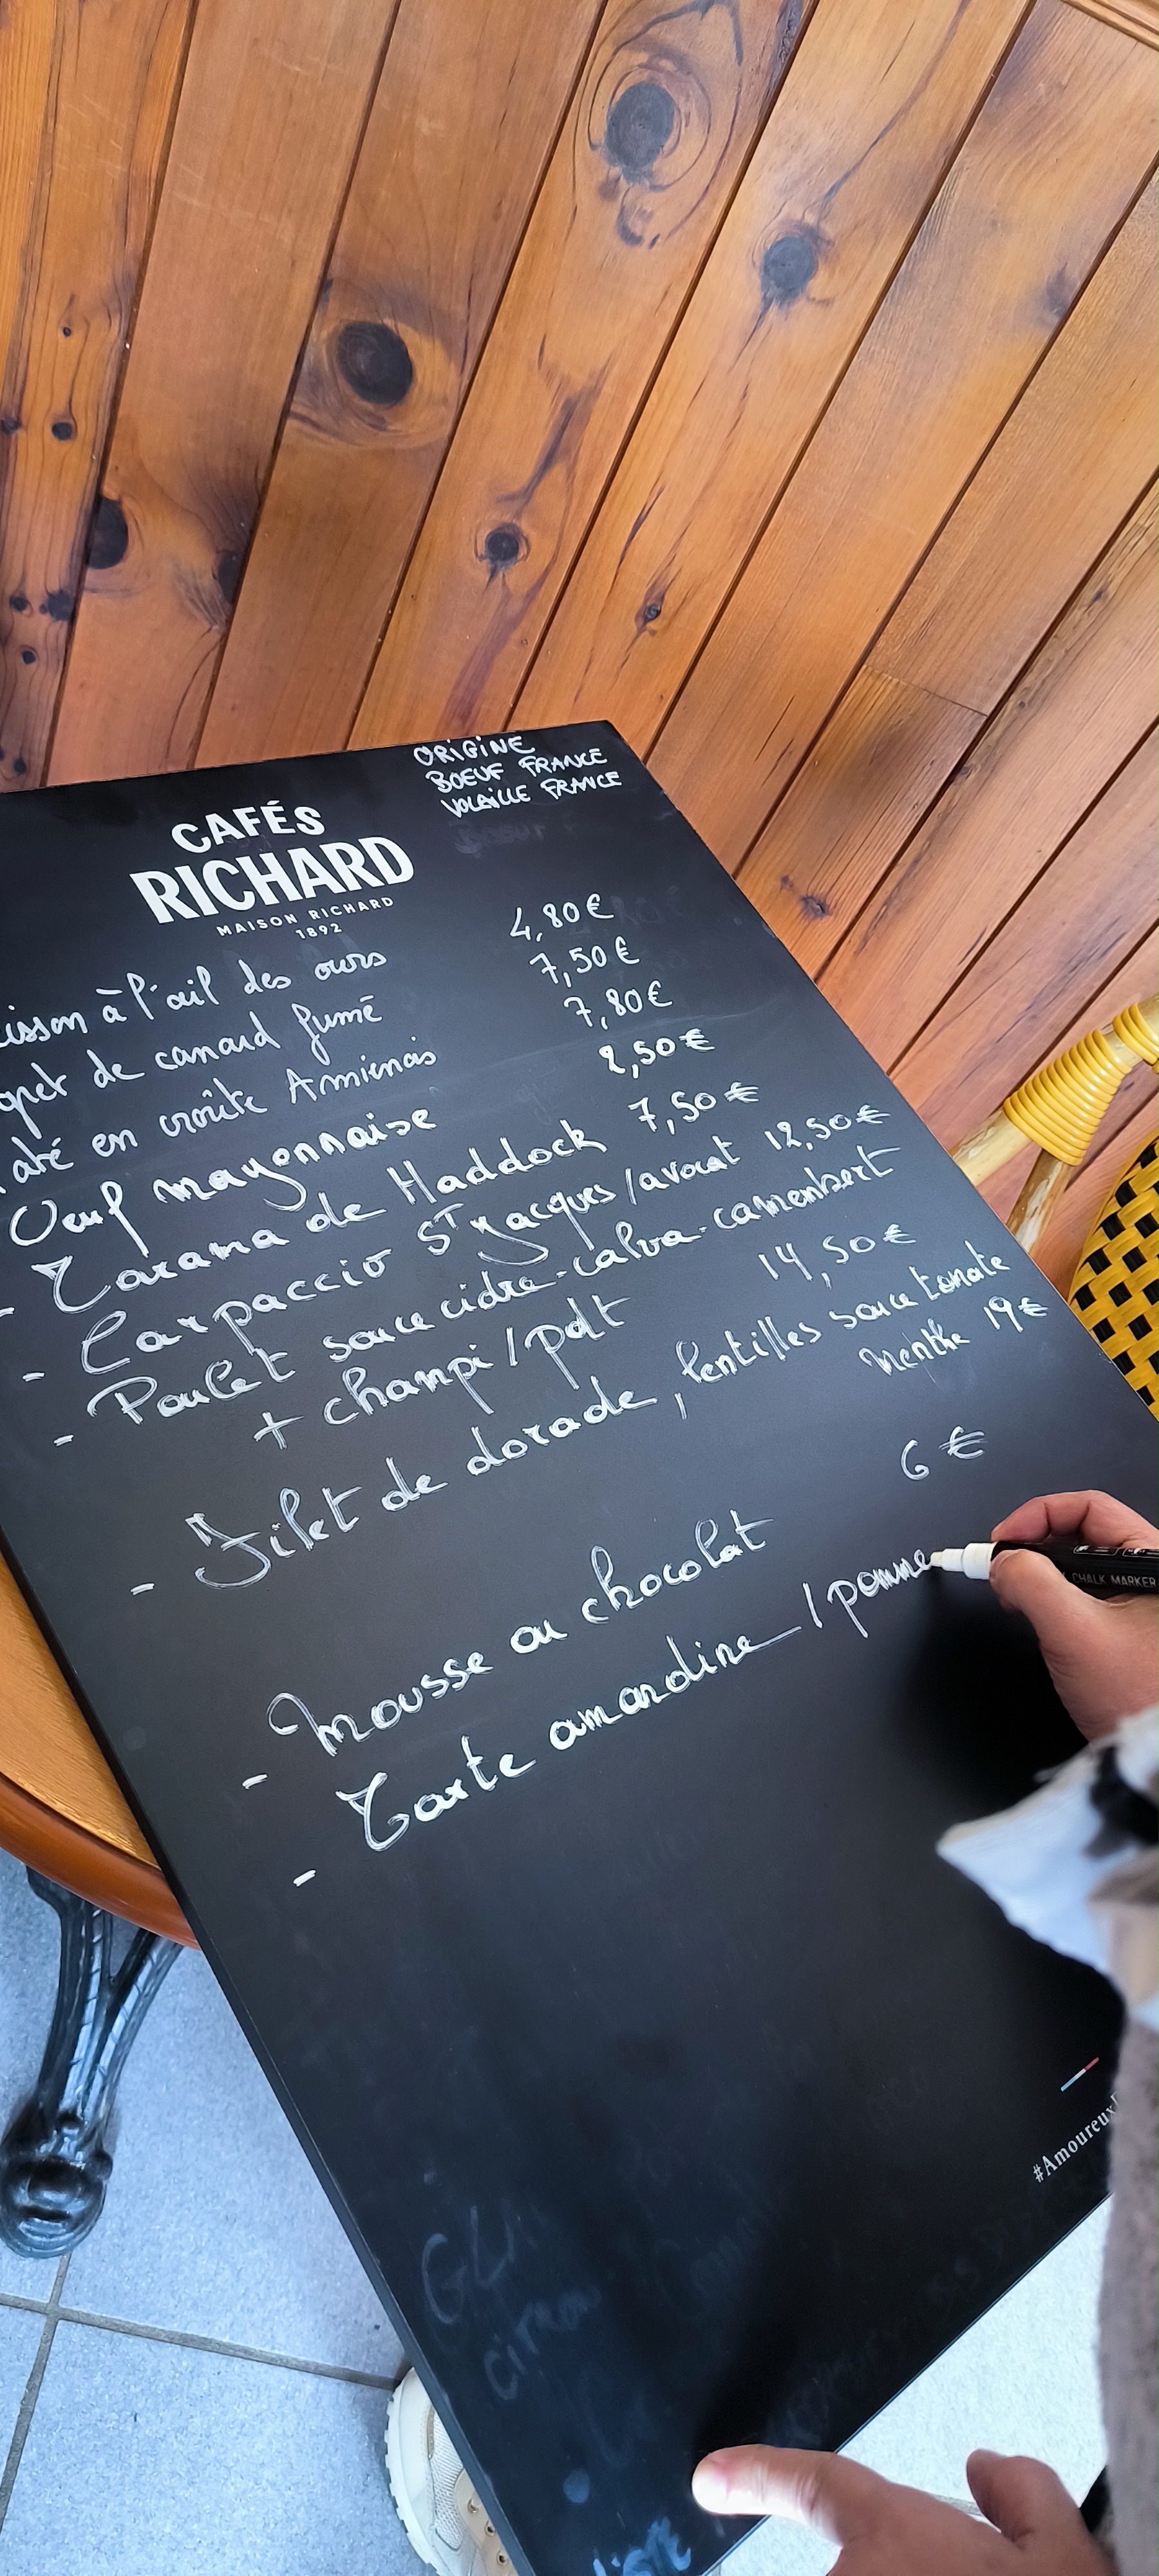 ORIGINE
BOEUF FRANCE
VOLAILLE FRANCE
CAFÉS
RICHARD
MAISON RICHARD
1892
isson à l'ail des ours 4,80€
de canard fumé 7,50€
até en croûte Amiénois 7,80€
Oeuf mayonnaise 2,50€
- Tarama de Haddock 7,50€
- Carpaccio St Jacques /avocat 12,50€
- Poulet sauce cidre-calva-camembert
+ champi / pdt 14,50€
- Filet de dorade, lentilles sauce tomate
menthe 19€
- Mousse au chocolat 6€
- Tarte amandine / pomme
CHALK MARKER
#Amoureux